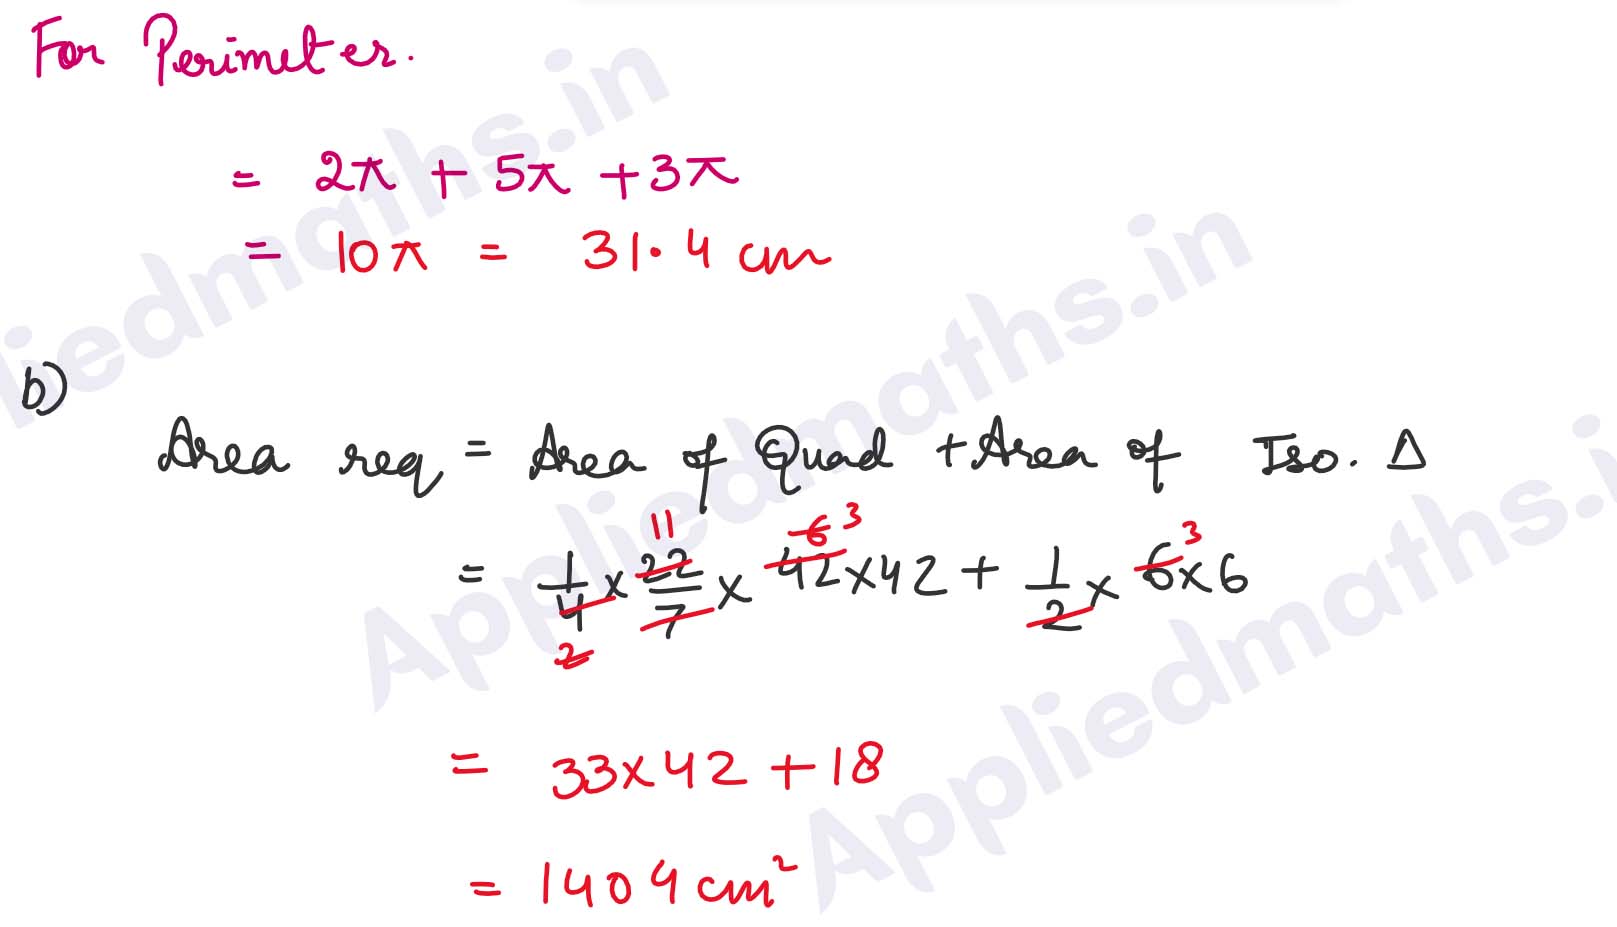 For Perimeter.
= 2π + 5π + 3π
= 10π = 31.4 cm
b)
Area req = Area of Quad + Area of Iso. Δ
= 1/4 × 22/7 × 42 × 42 + 1/2 × 6 × 6
11 6 3 3
2
= 33 × 42 + 18
= 1404 cm²
Appliedmaths.in
Appliedmaths.in
Appliedmaths.in